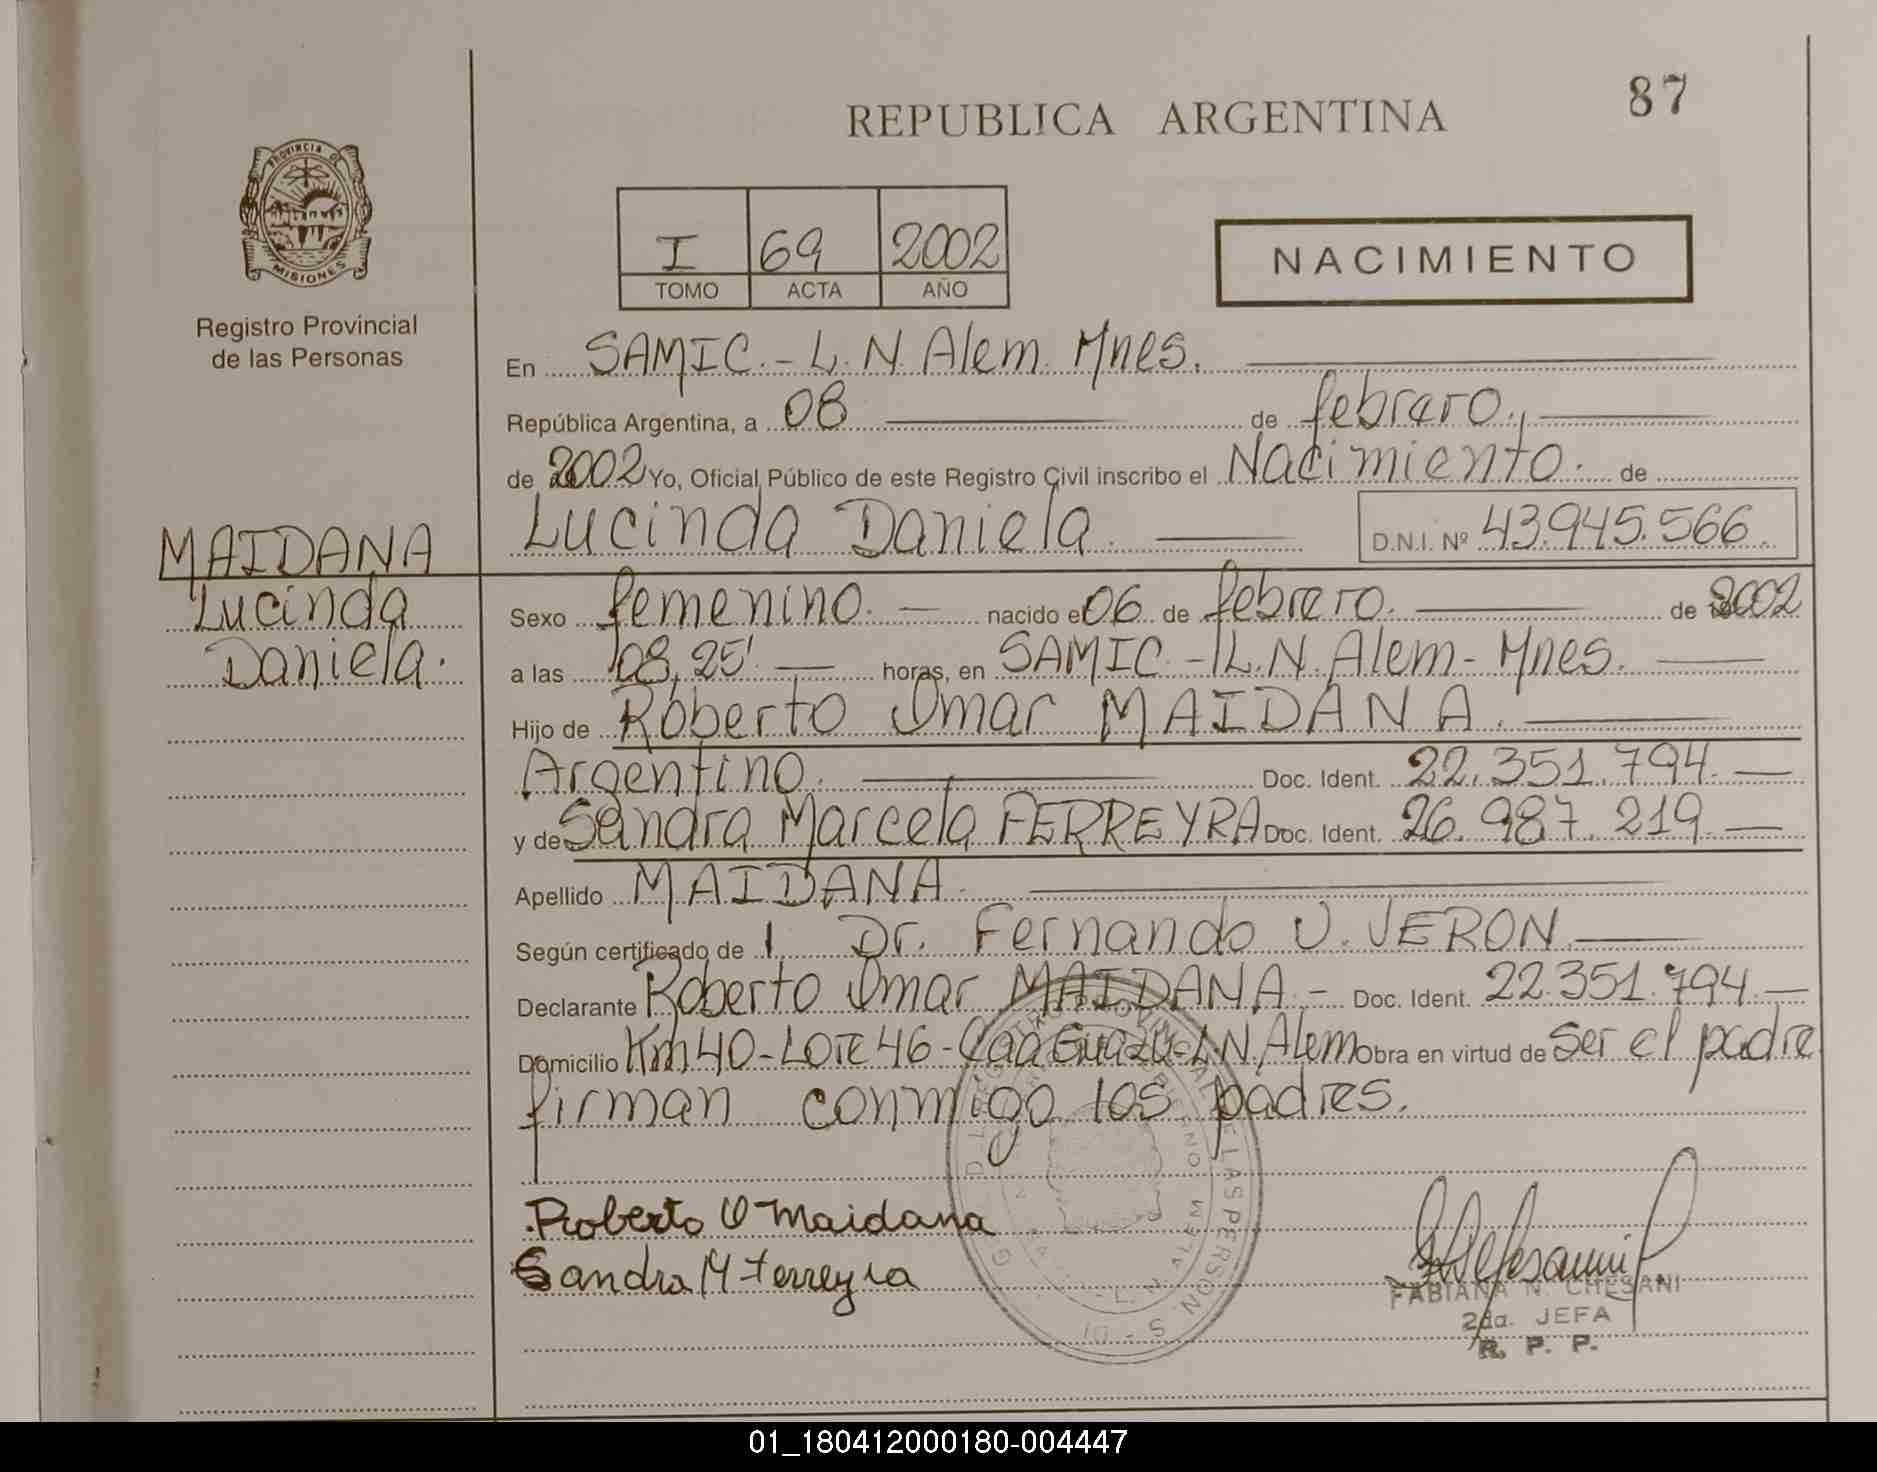 87
REPUBLICA ARGENTINA
PROVINCIA DE
MISIONES
Registro Provincial
de las Personas
I 69 2002
TOMO ACTA AÑO
NACIMIENTO
En SAMIC.- L. N. Alem. Mnes.
República Argentina, a 08 de febrero.
de 2002 Yo, Oficial Público de este Registro Civil inscribo el Nacimiento. de
Lucinda Daniela. D.N.I. Nº 43.945.566.
MAIDANA
Lucinda
Daniela.
Sexo femenino. nacido el 06 de febrero. de 2002
a las 08,25' horas, en SAMIC.- L.N. Alem- Mnes.
Hijo de Roberto Omar MAIDANA.
Argentino. Doc. Ident. 22.351.794.
y de Sandra Marcela FERREYRA Doc. Ident. 26.987.219.
Apellido MAIDANA.
Según certificado de 1. Dr. Fernando U. VERON.
Declarante Roberto Omar MAIDANA - Doc. Ident. 22.351.794.
Domicilio Km40-Lote 46-Caá Guazú-L.N. Alem Obra en virtud de Ser el padre
firman conmigo los padres.
Roberto O Maidana
Sandra M Ferreyra
FABIANA N. CHESANI
2da. JEFA
R. P. P.
01_180412000180-004447